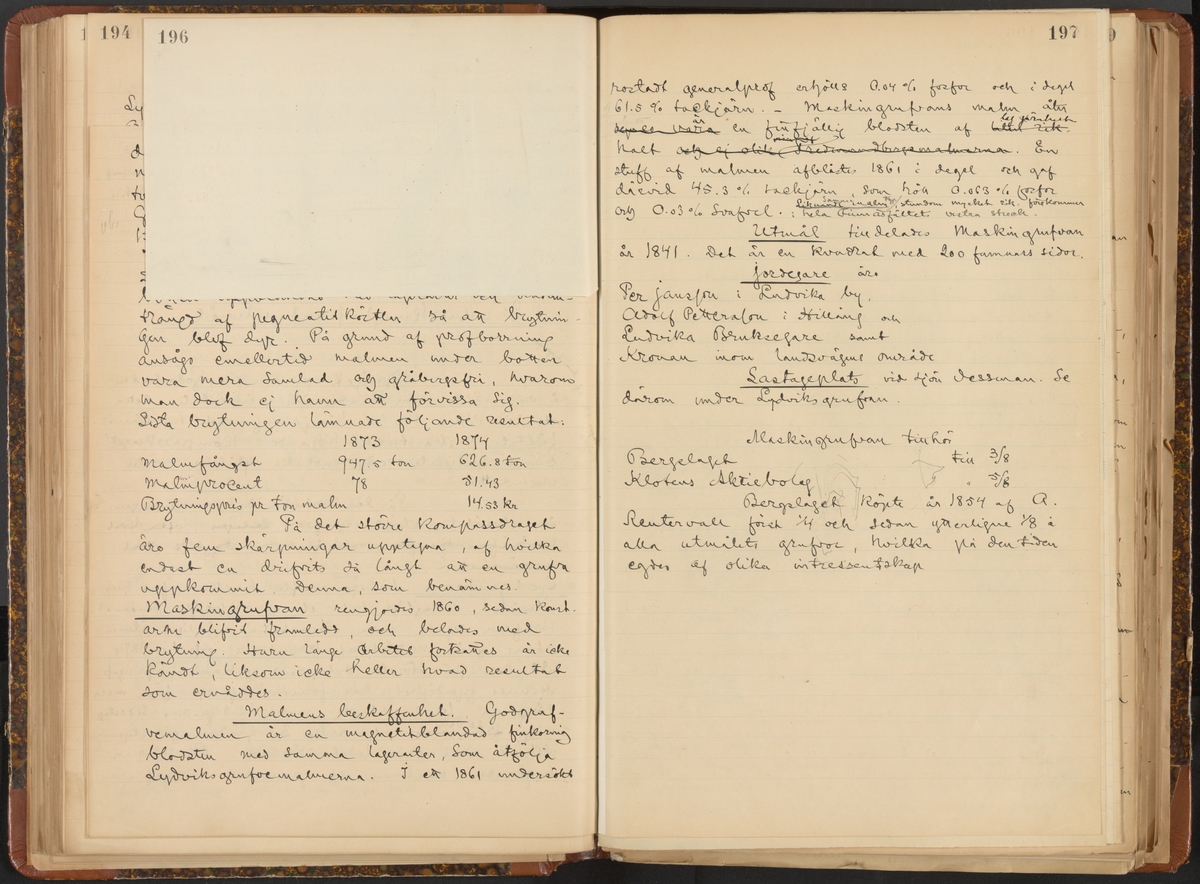 194
196
trängd af pegmatitkörtlar så att brytnin-
gen blef dyr. På grund af profborrning
ansågs emellertid malmen under botten
vara mera samlad och gråbergsfri, hvarom
man dock ej hann att förvissa sig.
Sista brytningen lämnade följande resultat:
1873 1874
Malmfångst 947.5 ton 626.8 ton
Malmprocent 78 51.43
Brytningspris pr ton malm 14.53 kr
På det större kompassdraget
äro fem skärpningar upptagna, af hvilka
endast en drifvits så långt att en grufva
uppkommit. Denna, som benämnes
Maskingrufvan rengjordes 1860, sedan konst-
arm blifvit framledd, och belades med
brytning. Huru länge arbetet fortsattes är icke
kändt, liksom icke heller hvad resultat
som ernåddes.
Malmens beskaffenhet. Godgruf-
vemalmen är en magnetitblandad finkornig
blodsten med samma lagerarter, som åtfölja
Lydviksgrufvemalmerna. I ett 1861 undersökt
197
rostadt generalprof erhölls 0.04 % fosfor och i degel
61.5 % tackjärn. - Maskingrufvans malm åter
är en finfjällig blodsten af
halt och ej olik Fredmundbergsmalmerna. En
stuff af malmen afblåstes 1861 i degel och gaf
därvid 45.3 % tackjärn, som höll 0.063 % fosfor
och 0.03 % svafvel. Liknande malm, stundom mycket rik, förekommer
i hela vestra streck.
Utmål tilldelades Maskingrufvan
år 1841. Det är en kvadrat med 200 famnars sidor.
Jordegare äro
Per Jansson i Ludvika by,
Adolf Pettersson i Hilläng och
Ludvika Bruksegare samt
Kronan inom landsvägens område
Lastageplats vid sjön Vessman. Se
därom under Lydviksgrufvan.
Maskingrufvan tillhör
Bergslaget till 3/8
Klotens Aktiebolag " 5/8
Bergslaget köpte år 1854 af A.
Rentervall först 1/4 och sedan ytterligare 1/8 i
alla utmålets grufvor, hvilka på den tiden
egdes af olika intressentskap